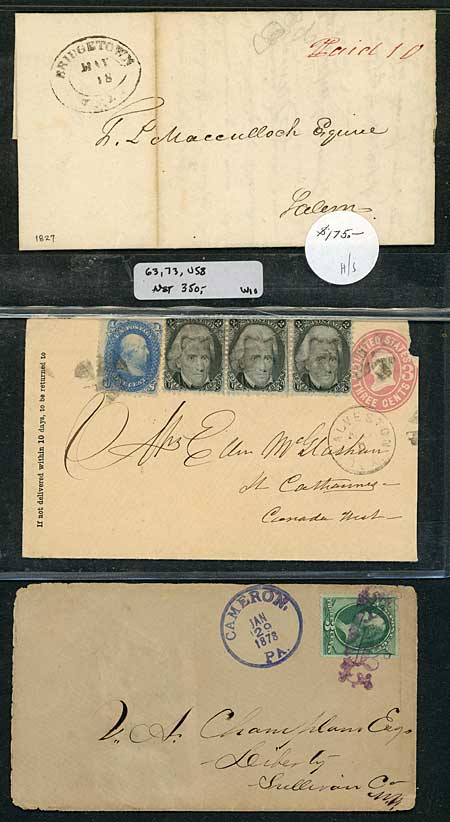 BRIDGETOWN
MAY
18
N.J.
Paid 10
F. L. Macculloch Esquire
Salem
1827
$175.-
H/S
63, 73, U58
NET 350,-
If not delivered within 10 days, to be returned to
UNITED STATES
THREE CENTS
GALVESTON
Mrs Ellen McGlashan
St Catharines
Canada West
CAMERON,
JAN
29
1878
PA.
Liberty
Sullivan Co
N.Y.